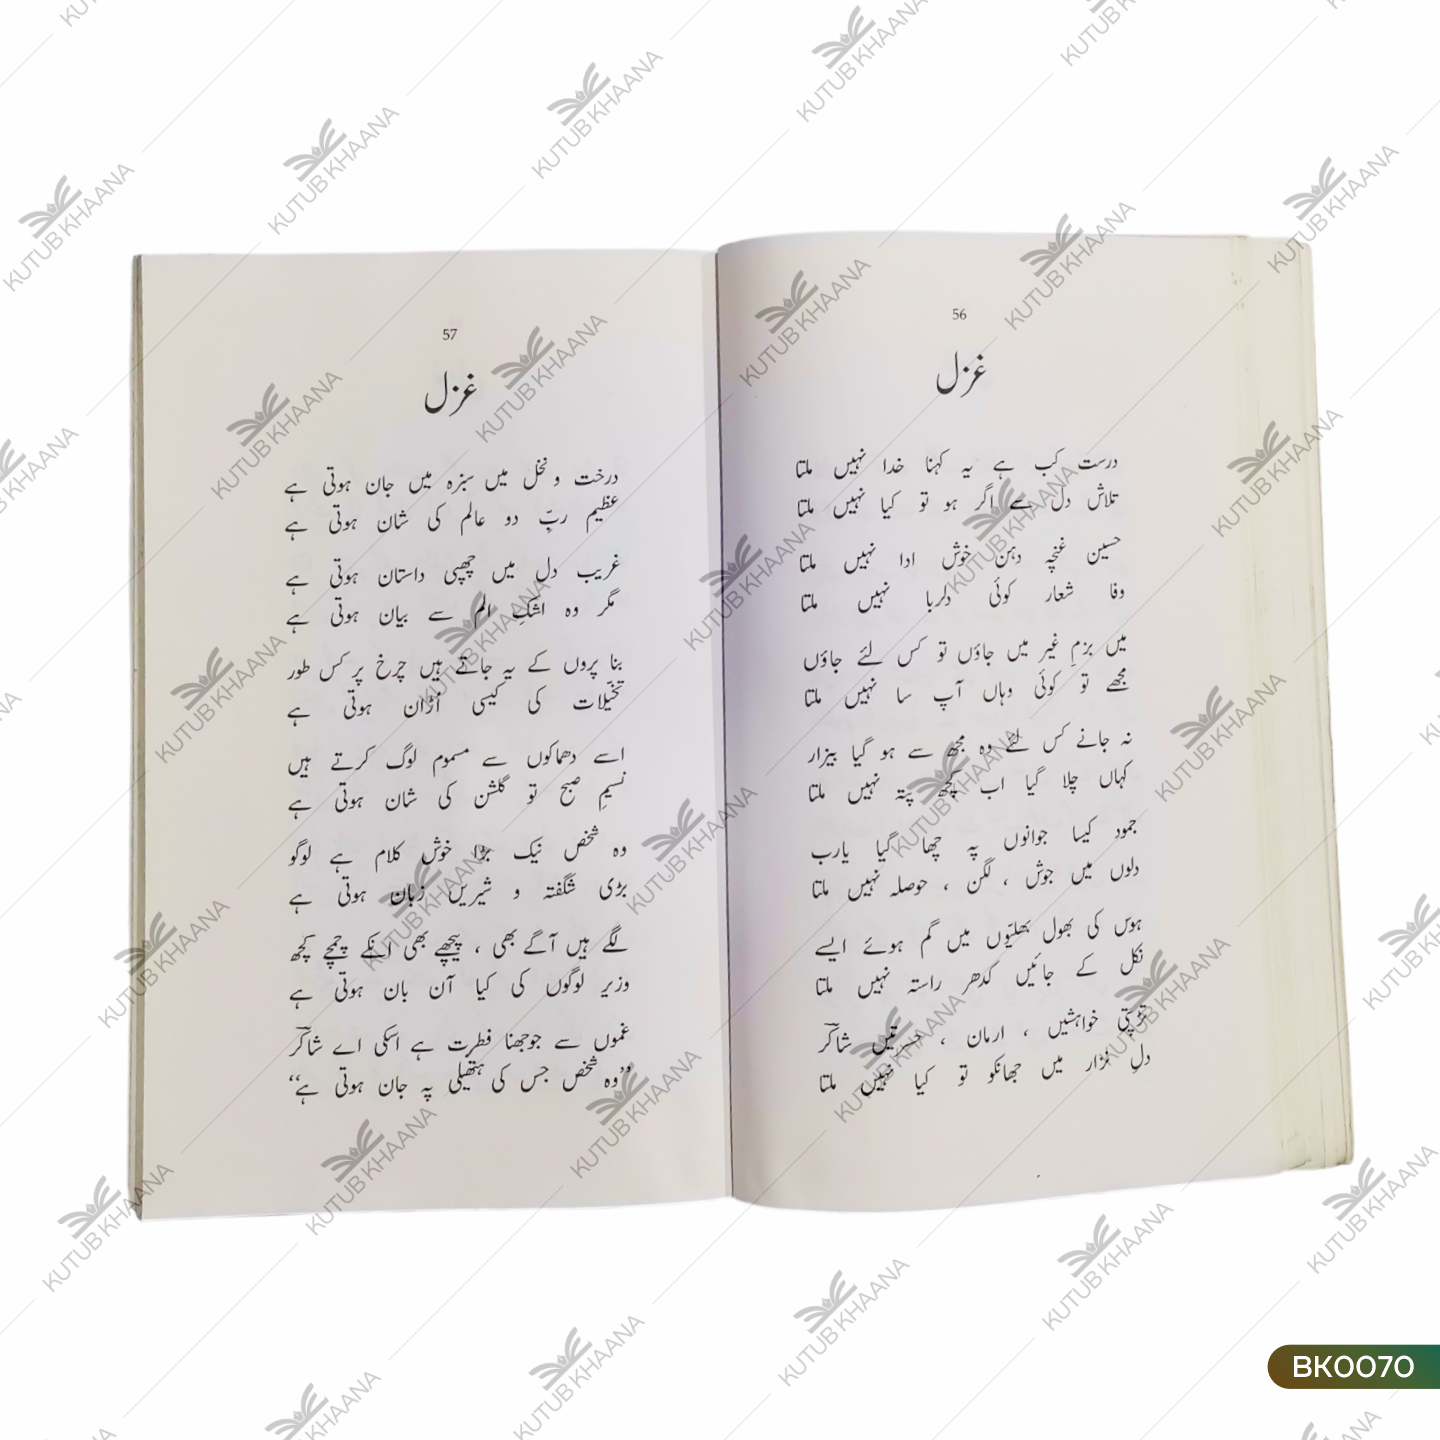 56
غزل
درست کب ہے یہ کہنا خدا نہیں ملتا
تلاش دل سے اگر ہو تو کیا نہیں ملتا
حسین غنچہ دہن خوش ادا نہیں ملتا
وفا شعار کوئی دلربا نہیں ملتا
میں بزمِ غیر میں جاؤں تو کس لئے جاؤں
مجھے تو کوئی وہاں آپ سا نہیں ملتا
نہ جانے کس لئے وہ مجھ سے ہو گیا بیزار
کہاں چلا گیا اب کچھ پتہ نہیں ملتا
جمود کیسا جوانوں پہ چھا گیا یارب
دلوں میں جوش ، لگن ، حوصلہ نہیں ملتا
ہوس کی بھول بھلیّوں میں گم ہوئے ایسے
نکل کے جائیں کدھر راستہ نہیں ملتا
تڑپتی خواہشیں ، ارمان ، حسرتیں شاکر
دلِ نزار میں جھانکو تو کیا نہیں ملتا
57
غزل
درخت و نخل میں سبزہ میں جان ہوتی ہے
عظیم ربِّ دو عالم کی شان ہوتی ہے
غریب دل میں چھپی داستان ہوتی ہے
مگر وہ اشکِ الم سے بیان ہوتی ہے
بنا پروں کے یہ جاتے ہیں چرخ پر کس طور
تخیّلات کی کیسی اُڑان ہوتی ہے
اسے دھماکوں سے مسموم لوگ کرتے ہیں
نسیمِ صبح تو گلشن کی شان ہوتی ہے
وہ شخص نیک بڑا خوش کلام ہے لوگو
بڑی شگفتہ و شیریں زبان ہوتی ہے
لگے ہیں آگے بھی ، پیچھے بھی انکے چمچے کچھ
وزیر لوگوں کی کیا آن بان ہوتی ہے
غموں سے جوجھنا فطرت ہے اسکی اے شاکر
”وہ شخص جس کی ہتھیلی پہ جان ہوتی ہے“
KUTUB KHAANA
BK0070